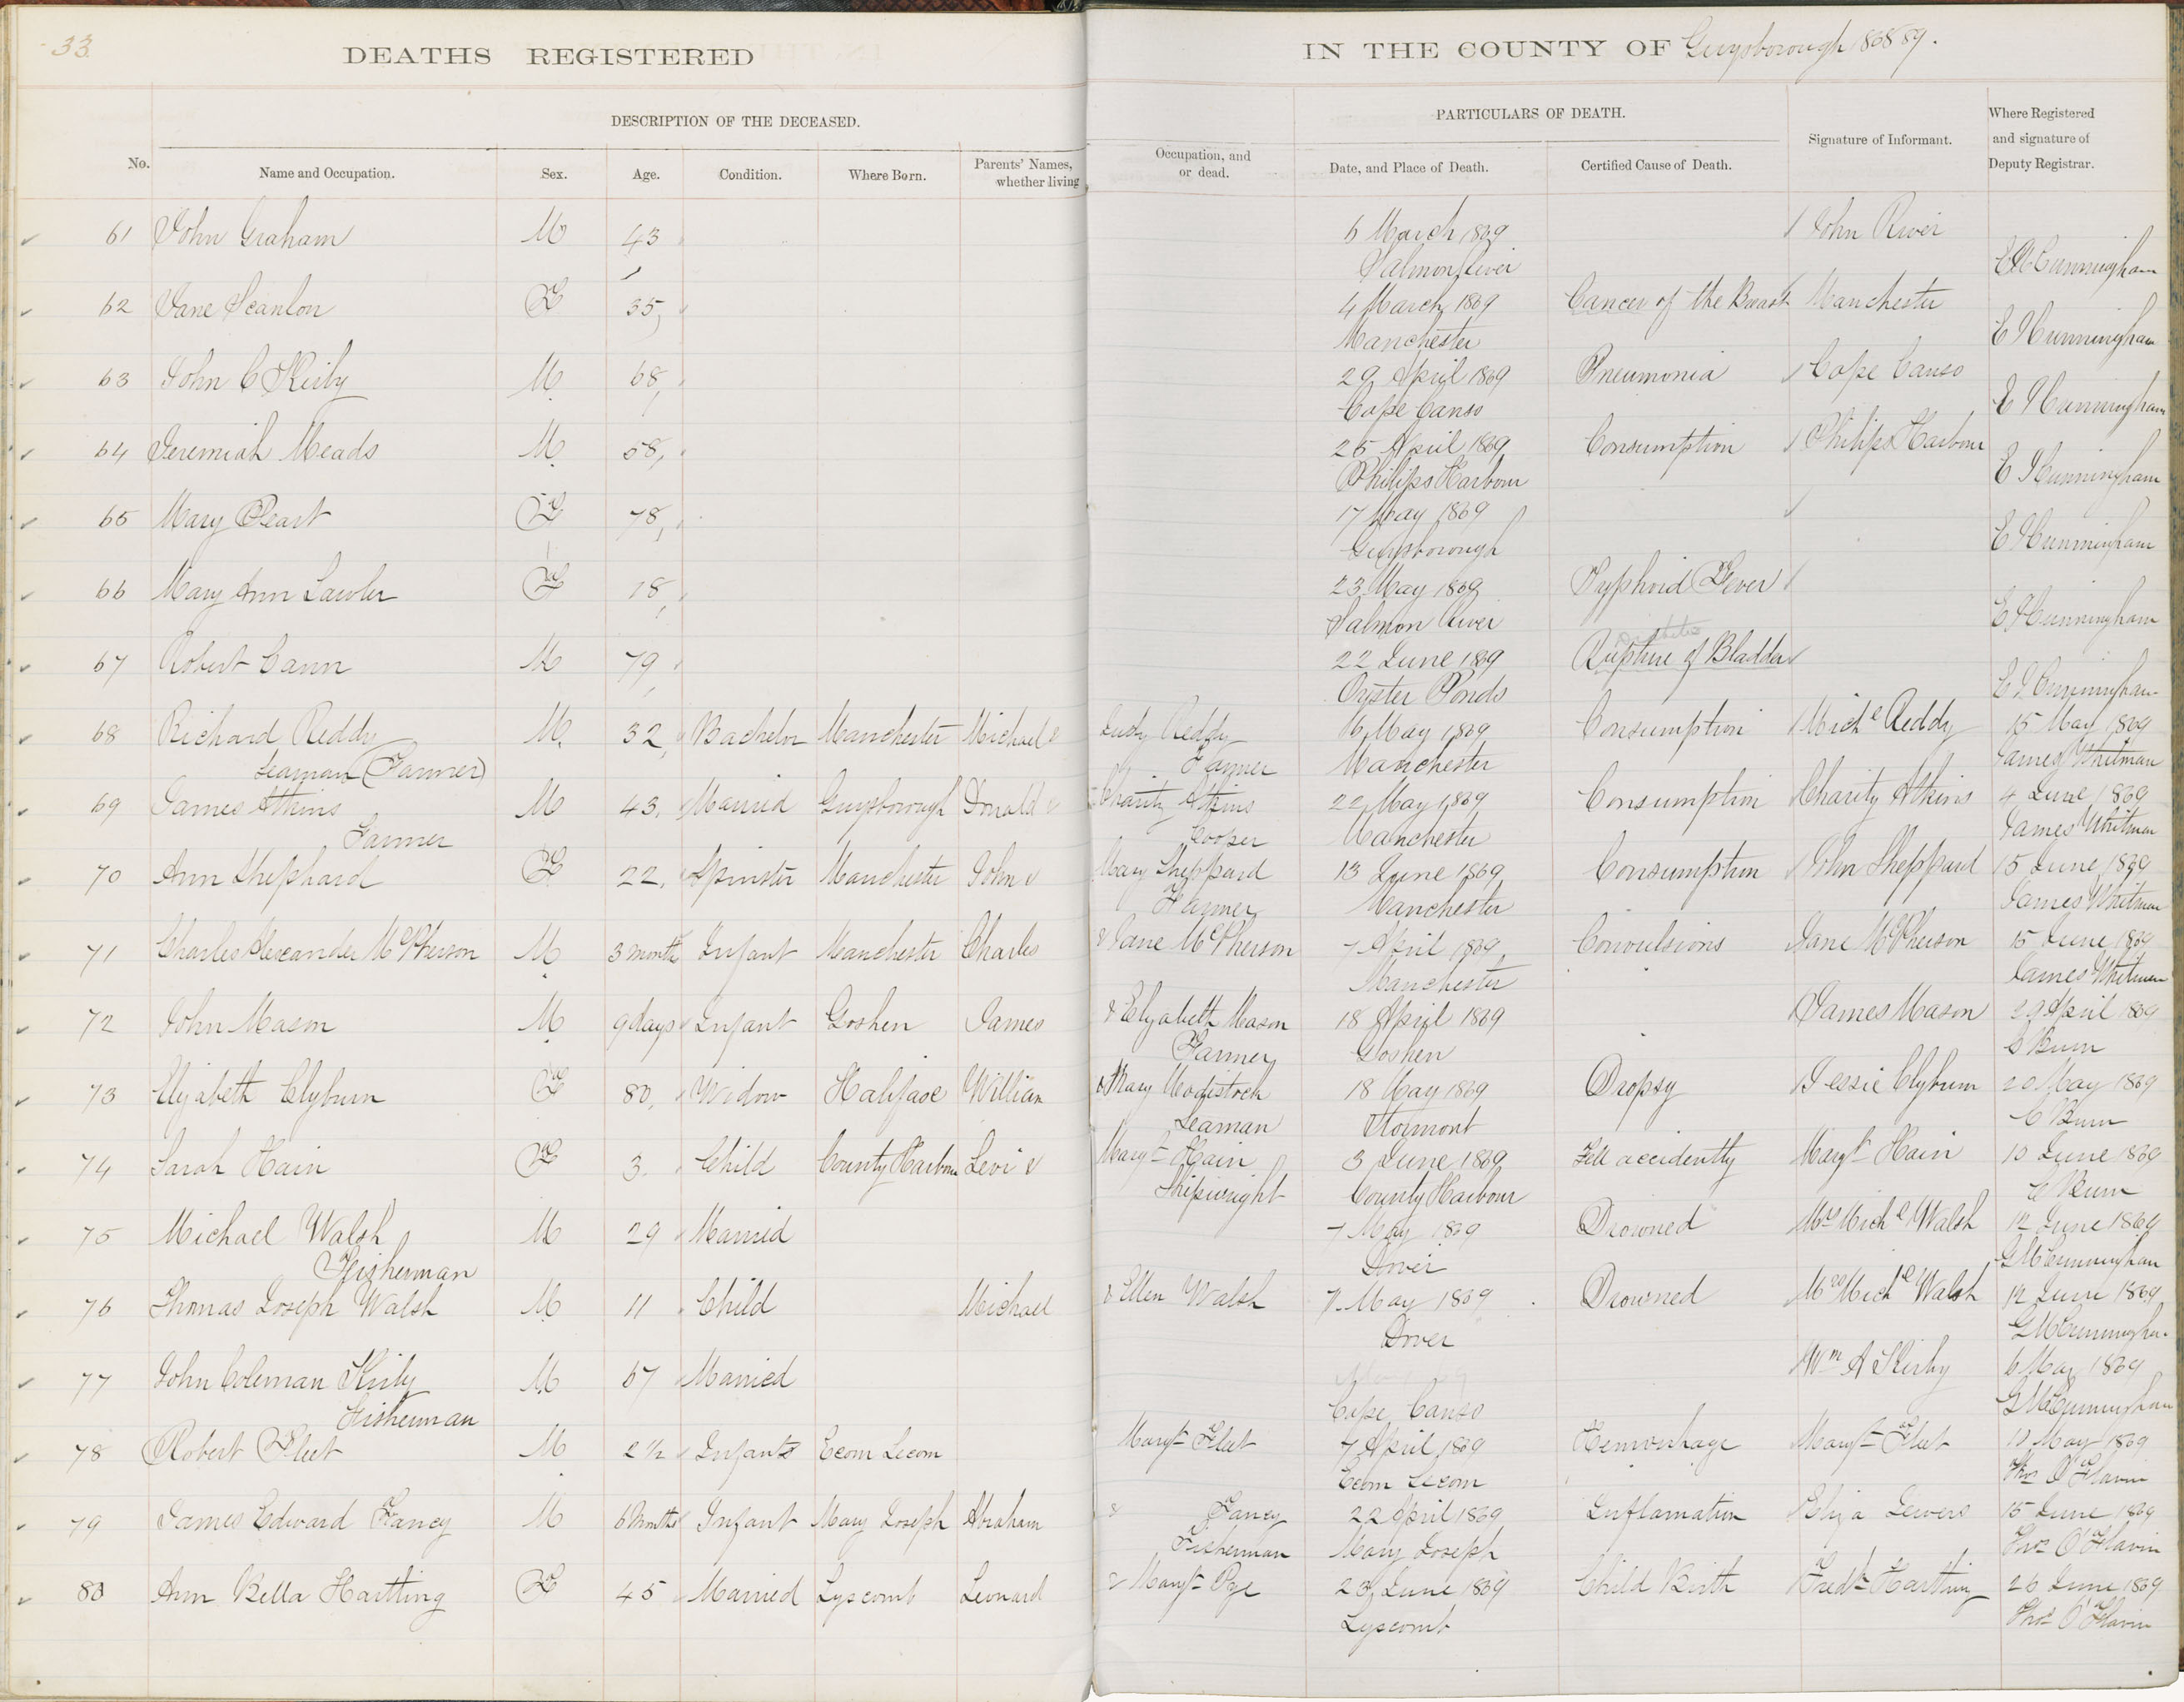 33
DEATHS REGISTERED IN THE COUNTY OF Guysborough 1868 89.
DESCRIPTION OF THE DECEASED. PARTICULARS OF DEATH.
No. Name and Occupation. Sex. Age. Condition. Where Born. Parents' Names, whether living Occupation, and or dead. Date, and Place of Death. Certified Cause of Death. Signature of Informant. Where Registered and signature of Deputy Registrar.
61 John Graham M 43 6 March 1869 John River
Salmon River E H Cunningham
62 Jane Scanlon F 35 4 March 1869 Cancer of the Breast Manchester
Manchester E H Cunningham
63 John C Kirby M 68 29 April 1869 Pneumonia Cape Canso
Cape Canso E H Cunningham
64 Jeremiah Meads M 58 25 April 1869 Consumption Philips Harbour
Philips Harbour E H Cunningham
65 Mary Peart F 78 17 May 1869
Guysborough E H Cunningham
66 Mary Ann Lawler F 18 23 May 1869 Typhoid Fever
Salmon River E H Cunningham
67 Robert Cann M 79 22 June 1869 Rupture of Bladder
Oyster Ponds E H Cunningham
68 Richard Reddy M. 32 Bachelor Manchester Michael & Judy Reddy 16 May 1869 Consumption Mich<sup>l</sup> Reddy 15 May 1869
Seaman (Farmer) Farmer Manchester James Whitman
69 James Atkins M 43. Married Guysborough Donald & Charity Atkins 22 May 1869 Consumption Charity Atkins 4 June 1869
Farmer Cooper Manchester James Whitman
70 Ann Shephard F 22. Spinster Manchester John & Mary Sheppard 13 June 1869 Consumption John Sheppard 15 June 1869
Farmer Manchester James Whitman
71 Charles Alexander McPherson M 3 months Infant Manchester Charles & Jane McPherson 7 April 1869 Convulsions Jane McPherson 15 June 1869
Manchester James Whitman
72 John Mason M 9 days Infant Goshen James & Elizabeth Mason 18 April 1869 James Mason 29 April 1869
Farmer Goshen
73 Elizabeth Clyburn F 80. Widow Halifax William & Mary 18 May 1869 Dropsy Jessie Clyburn 20 May 1869
Seaman Stormont
74 Sarah Hain F 3. Child County Harbour Levi & Margt Hain 3 June 1869 Fell accidently Margt Hain 10 June 1869
Shipwright County Harbour
75 Michael Walsh M 29 Married 7 May 1869 Drowned Mrs Michl Walsh 12 June 1869
Fisherman Dover G M Cunningham
76 Thomas Joseph Walsh M 11 Child Michael & Ellen Walsh 7 May 1869 Drowned Mrs Michl Walsh 12 June 1869
Dover G M Cunningham
77 John Coleman Kirby M 67 Married Wm A Kirby 6 May 1869
Fisherman Cape Canso G M Cunningham
78 Robert Fleet M 2 1/2 Infant Ecom Secom Margt Fleet 7 April 1869 Hemorrhage Margt Fleet 18 May 1869
Ecom Secom Thos O'Flavin
79 James Edward Fancy M 6 Months Infant Mary Joseph Abraham & Fancy 22 April 1869 Inflamation Eliza Lewers 15 June 1869
Fisherman Mary Joseph Thos O'Flavin
80 Ann Bella Hartling F 45 Married Lyscomb Leonard & Margt Pye 20 June 1869 Child Birth Fredk Hartling 26 June 1869
Lyscomb Thos O'Flavin